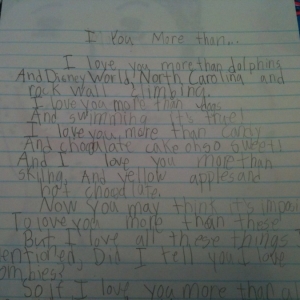 I You More than...
I love you more than dolphins
And Disney World, North Carolina and
rock wall climbing.
I love you more than
And swimming it's true!
I love you more than candy
And chocolate cake oh so sweet!
And I love you more than
skiing, And yellow apples and
hot chocolate.
Now you may think it's
To love you more than these
But I love all these things I
mentioned, Did I tell you I love
So if I love you more than